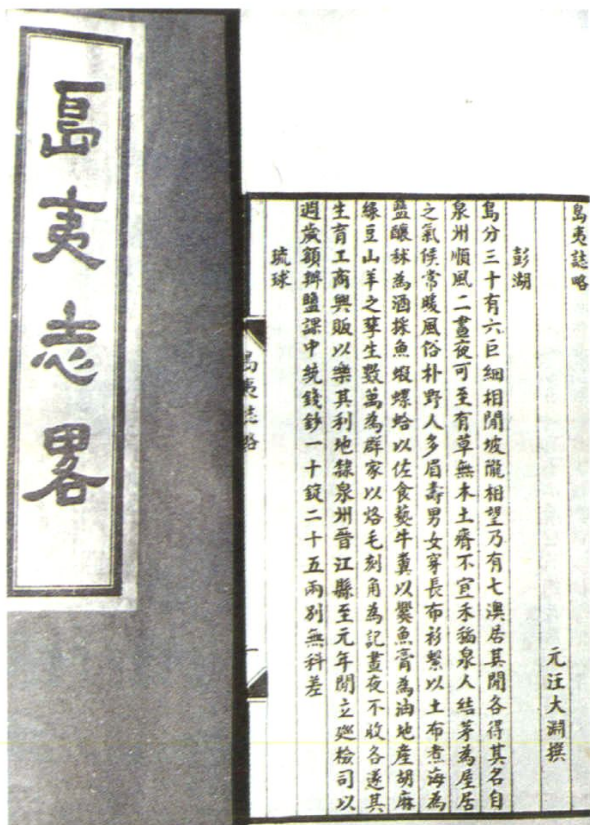 島夷志畧
島夷誌略
元汪大淵撰
彭湖
島分三十有六巨細相間坡隴相望乃有七澳居其間各得其名自
泉州順風二晝夜可至有草無木土瘠不宜禾稻泉人結茅為屋居
之氣候常暖風俗朴野人多眉壽男女穿長布衫繫以土布煮海為
鹽釀秫為酒採魚蝦螺蛤以佐食爇牛糞以爨魚膏為油地產胡麻
綠豆山羊之孳生數萬為群家以烙毛刻角為記晝夜不收各遂其
生育工商興販以樂其利地隸泉州晉江縣至元年間立廵檢司以
週歲額辦鹽課中統錢鈔一十錠二十五兩別無科差
琉球
島夷誌略
一